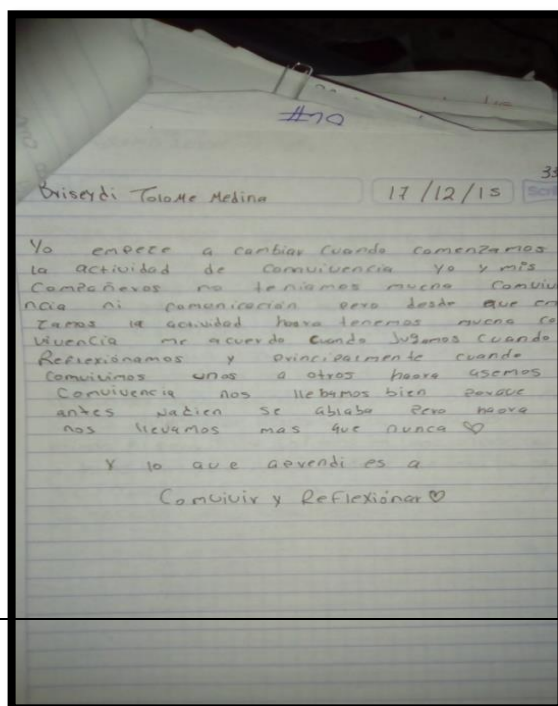 #10
Briseydi Tolome Medina 17/12/15
Yo empece a cambiar cuando comenzamos
la actividad de comvivencia yo y mis
compañeros no teniamos mucha comviv
ncia ni comonicación pero desde que em
zamos la actividad haora tenemos mucha co
vivencia me acuerdo cuando Jugamos cuando
Reflexiónamos y principalmente cuando
comvivimos unos a otros haora asemos
comvivencia nos llebamos bien porque
antes nadien se ablaba pero haora
nos llevamos mas que nunca ♡
Y lo que aprendi es a
Comvivir y Reflexiónar ♡